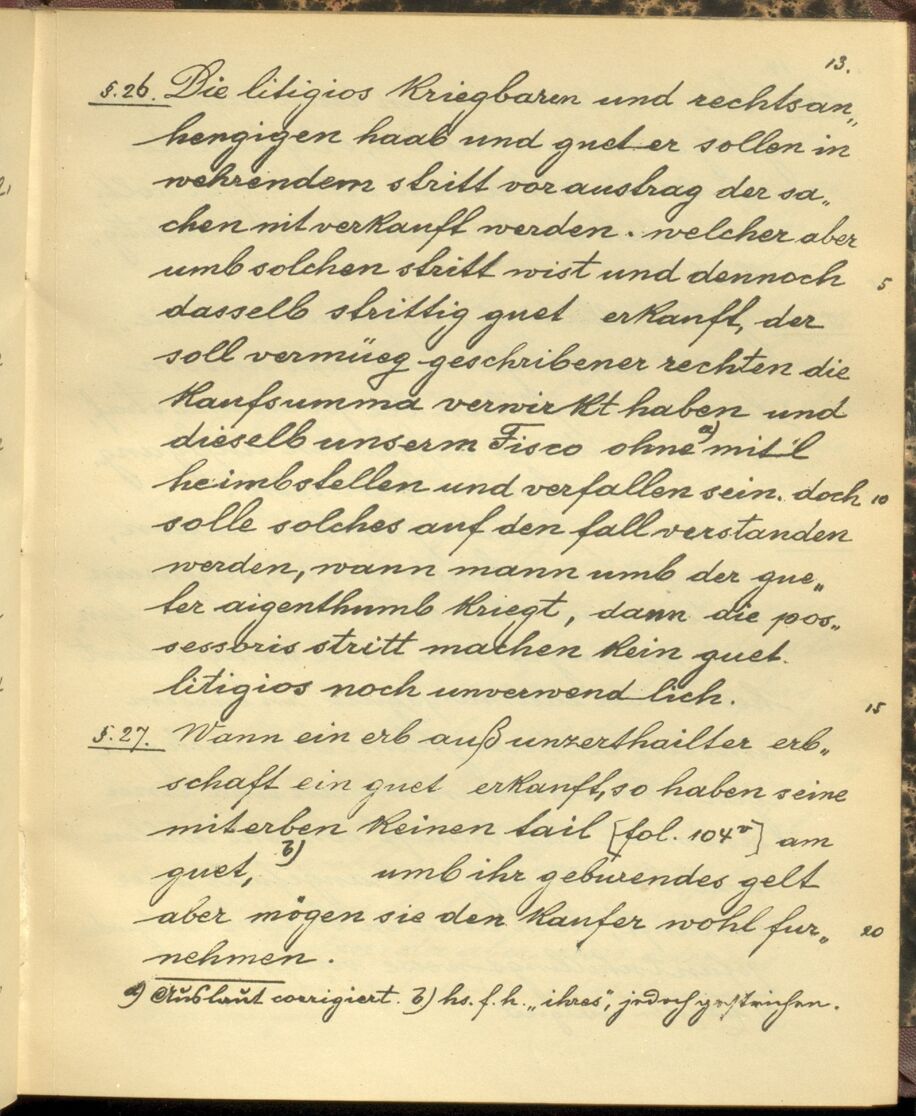 13.
§. 26. Die litigios kriegbaren und rechtsan„
hengigen haab und gueter sollen in
wehrendem stritt vor austrag der sa„
chen nit verkauft werden. welcher aber
umb solchen stritt wist und dennoch 5
dasselb strittig guet erkauft, der
soll vermüeg geschribener rechten die
kaufsumma verwirkt haben und
dieselb unserm Fisco ohne a) mit'l
heimbstellen und verfallen sein. doch 10
solle solches auf den fall verstanden
werden, wann mann umb der gue„
ter aigenthumb kriegt, dann die pos„
sessoris stritt machen kein guet
litigios noch unverwendlich. 15
§. 27. Wann ein erb auß unzerthailter erb„
schaft ein guet erkauft, so haben seine
miterben keinen tail [fol. 104v] am
guet, b) umb ihr geburendes gelt
aber mögen sie den kaufer wohl fur„ 20
nehmen.
a) Auslaut corrigiert. b) hs. f. h. „ihres", jedoch gestrichen.